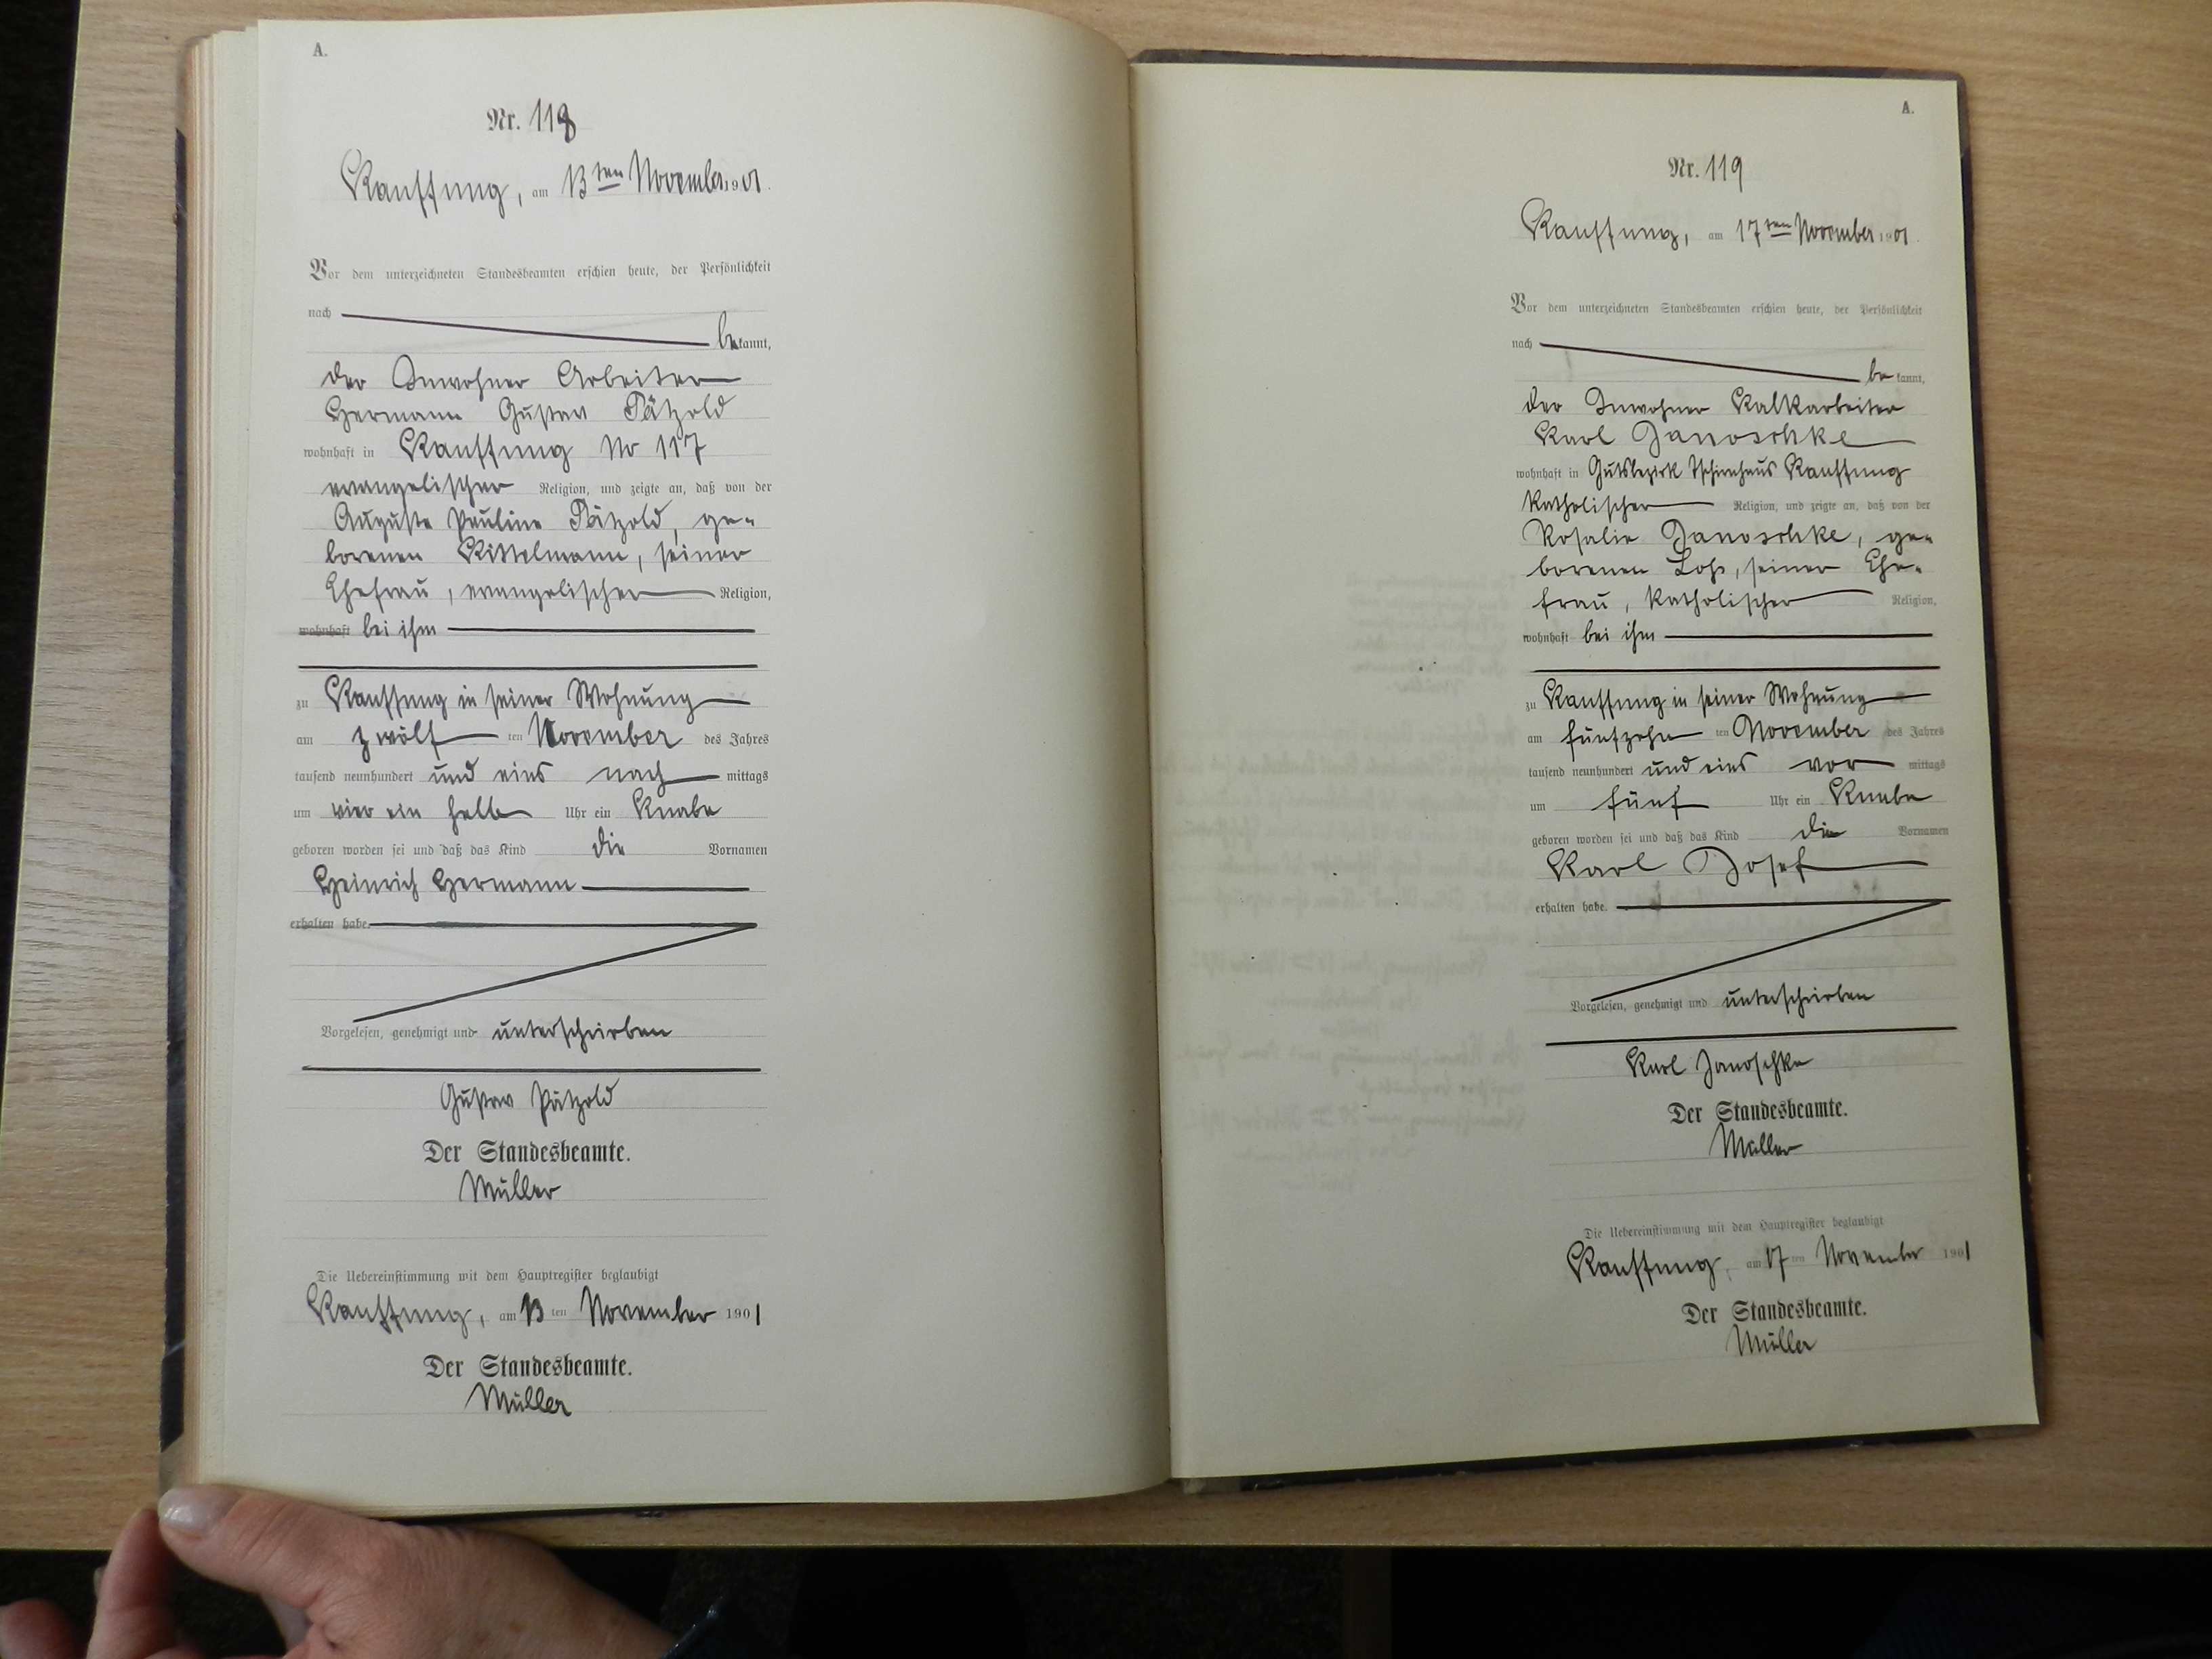 A.
Nr. 118
Kauffung, am 13ten November 1901.
Vor dem unterzeichneten Standesbeamten erschien heute, der Persönlichkeit
nach
bekannt,
der Inwohner Arbeiter
Hermann Gustav Pätzold
wohnhaft in Kauffung No 117
evangelischer Religion, und zeigte an, daß von der
Auguste Pauline Pätzold, ge-
borenen Kittelmann, seiner
Ehefrau, evangelischer Religion,
wohnhaft bei ihm
zu Kauffung in seiner Wohnung
am zwölf ten November des Jahres
tausend neunhundert und eins nach mittags
um vier ein halb Uhr ein Knabe
geboren worden sei und daß das Kind die Vornamen
Heinrich Hermann
erhalten habe.
Vorgelesen, genehmigt und unterschrieben
Gustav Pätzold
Der Standesbeamte.
Müller
Die Uebereinstimmung mit dem Hauptregister beglaubigt
Kauffung, am 13 ten November 1901
Der Standesbeamte.
Müller
A.
Nr. 119
Kauffung, am 17ten November 1901.
Vor dem unterzeichneten Standesbeamten erschien heute, der Persönlichkeit
nach
bekannt,
der Inwohner Kalkarbeiter
Karl Janoschke
wohnhaft in Gutsbezirk Tschirnhaus Kauffung
katholischer Religion, und zeigte an, daß von der
Rosalie Janoschke, ge-
borenen Lohs, seiner Ehe-
frau, katholischer Religion,
wohnhaft bei ihm
zu Kauffung in seiner Wohnung
am fünfzehn ten November des Jahres
tausend neunhundert und eins vor mittags
um fünf Uhr ein Knabe
geboren worden sei und daß das Kind die Vornamen
Karl Josef
erhalten habe.
Vorgelesen, genehmigt und unterschrieben
Karl Janoschke
Der Standesbeamte.
Müller
Die Uebereinstimmung mit dem Hauptregister beglaubigt
Kauffung, am 17 ten November 1901
Der Standesbeamte.
Müller